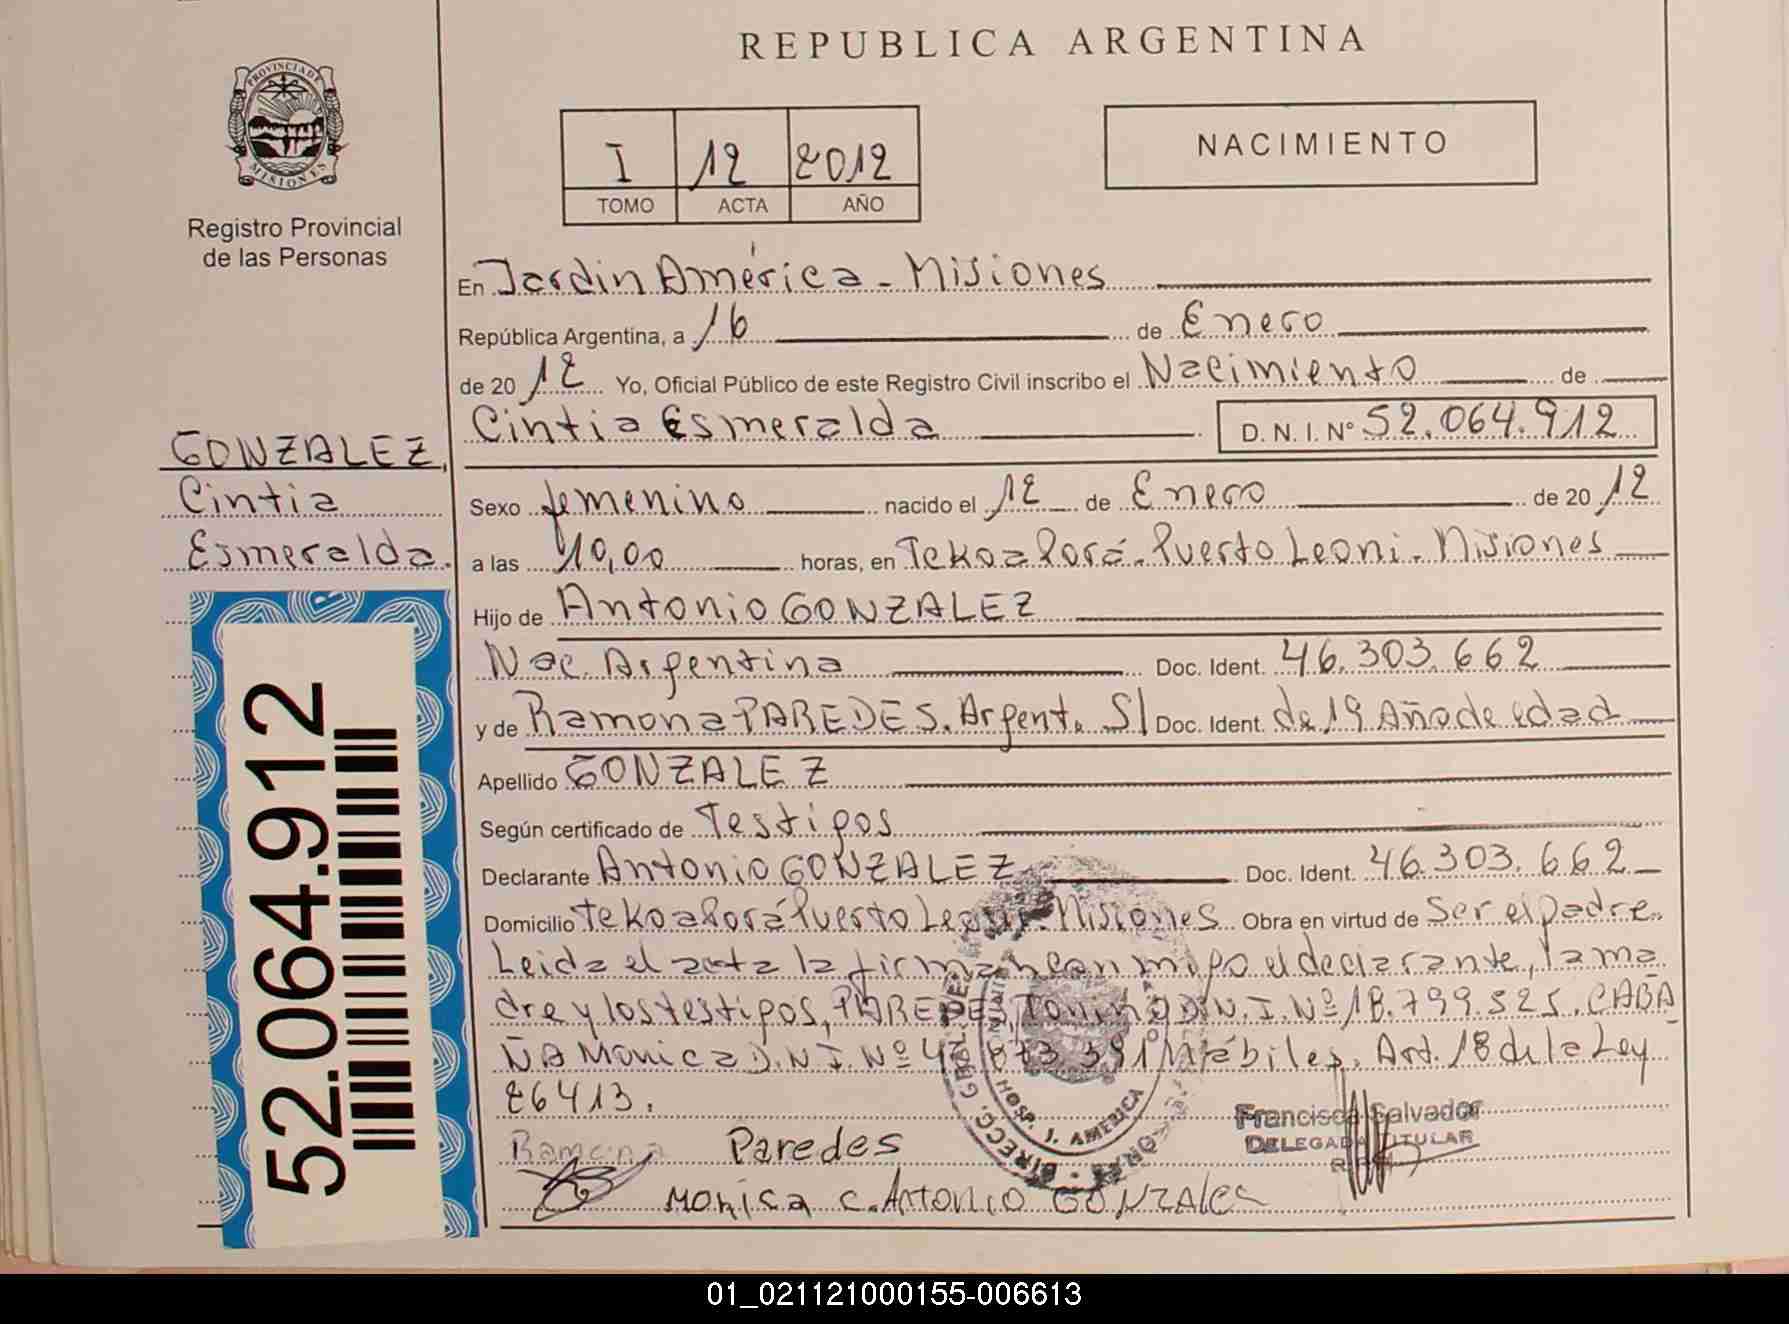 REPUBLICA ARGENTINA
PROVINCIA DE
MISIONES
Registro Provincial
de las Personas
I 12 2012
TOMO ACTA AÑO
NACIMIENTO
En Jardin América - Misiones
República Argentina, a 16 de Enero
de 20 12 Yo, Oficial Público de este Registro Civil inscribo el Nacimiento de
Cintia Esmeralda D. N. I. Nº 52.064.912
GONZALEZ,
Cintia
Esmeralda.
Sexo femenino nacido el 12 de Enero de 20 12
a las 10,00 horas, en Tekoa Porá - Puerto Leoni - Misiones
Hijo de Antonio GONZALEZ
Nac. Argentina Doc. Ident. 46.303.662
y de Ramona PAREDES. Argent. S/ Doc. Ident. de 19 Año de edad
Apellido GONZALEZ
Según certificado de Testigos
Declarante Antonio GONZALEZ Doc. Ident. 46.303.662
Domicilio Tekoa Porá Puerto Leoni - Misiones. Obra en virtud de Ser el padre.
Leida el acta la firman con migo el declarante, la ma
dre y los testigos, PAREDES, Tonino D.N.I. Nº 18.799.525. CABA
ÑA Monica D.N.I. Nº 873 391 Hábiles. Art. 18 de la Ley
26413.
52.064.912
HOSP. J. AMERICA
Francisca Salvador
DELEGADA TITULAR
Ramona Paredes
Monica C. Antonio GONZALES
01_021121000155-006613